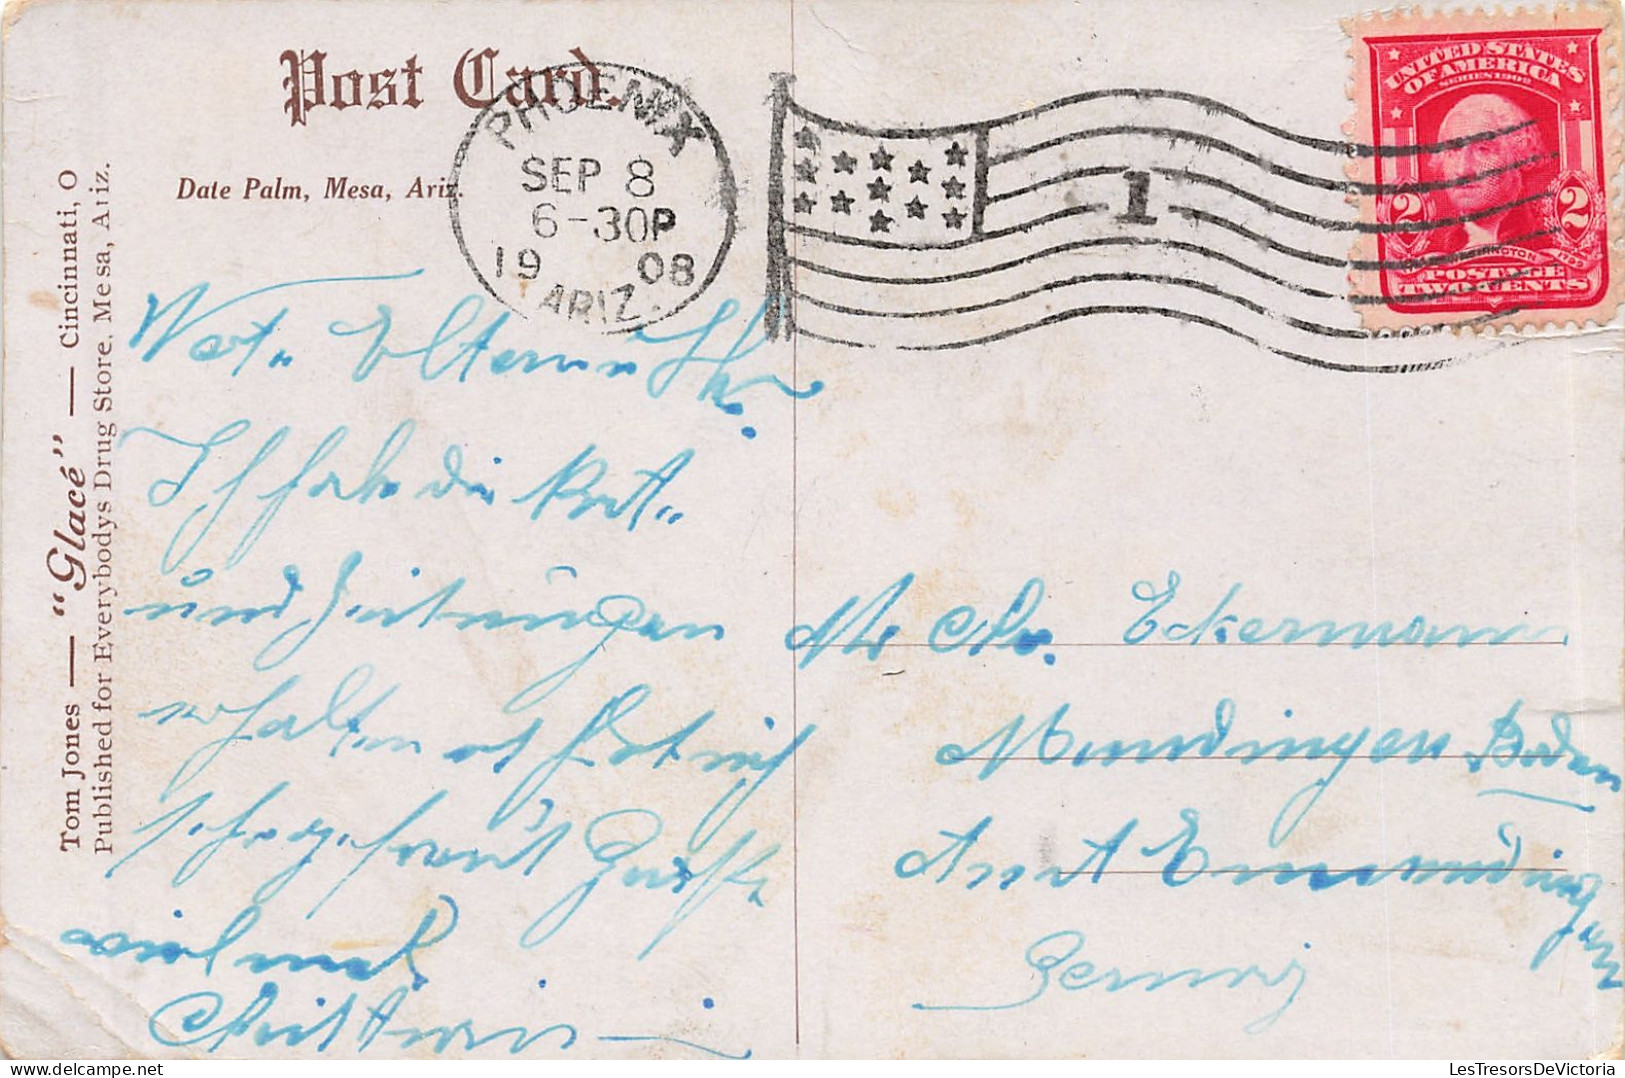 Post Card.
Date Palm, Mesa, Ariz.
Tom Jones — "Glacé" — Cincinnati, O
Published for Everybodys Drug Store, Mesa, Ariz.
PHOENIX
SEP 8
6-30P
1908
ARIZ.
1
UNITED STATES
OF AMERICA
SERIES 1902
2 2
WASHINGTON
POSTAGE
TWO CENTS
Wert. Eltern
Ich habe die
und Zeitungen
erhalten es hat mich
sehr gefreut
Christian
Mr Chr. Eckermann
Mundingen Baden
Amt Emmendingen
Germany
LesTresorsDeVictoria